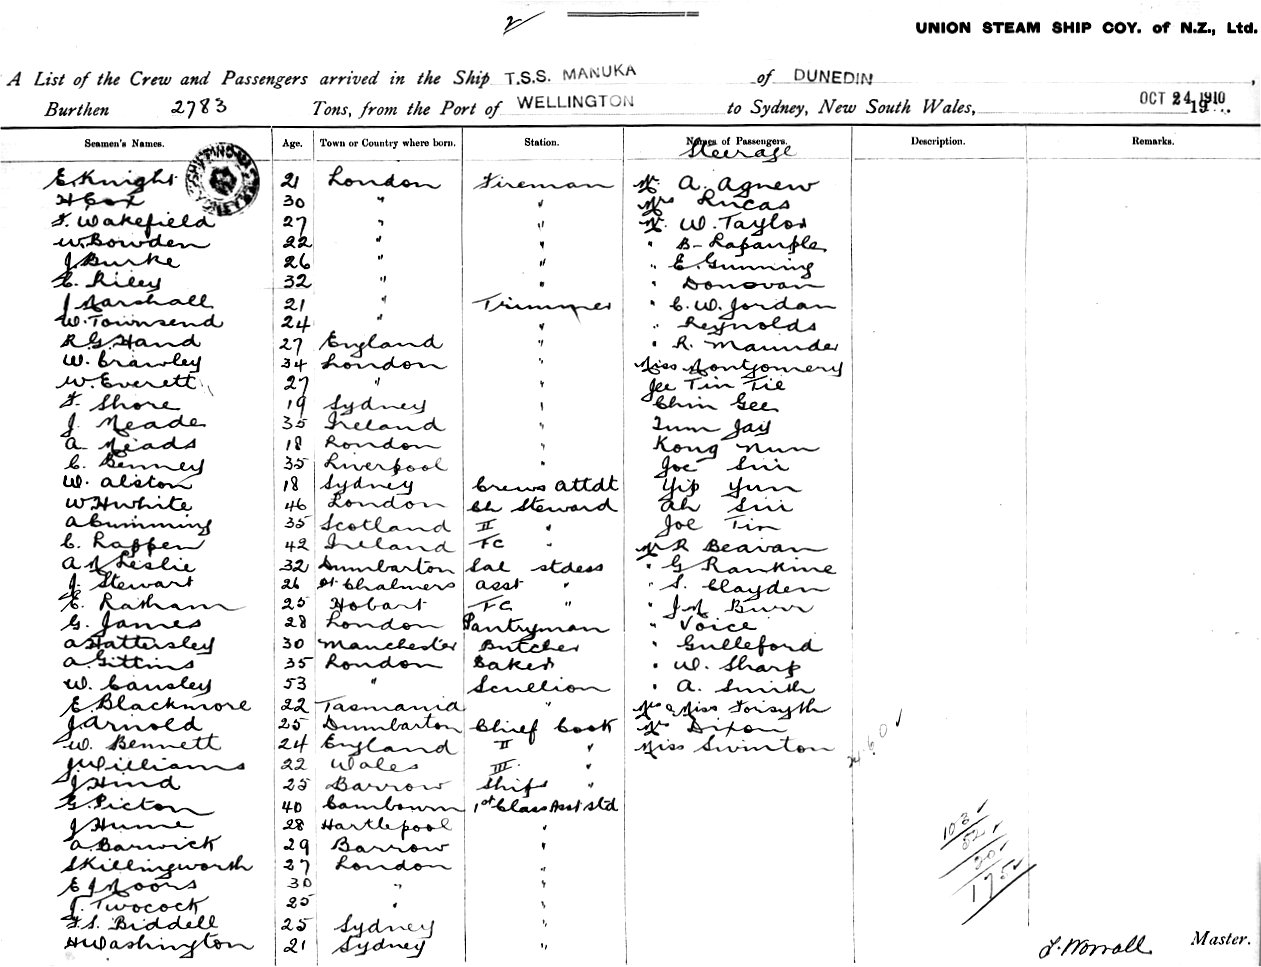 2
UNION STEAM SHIP COY. of N.Z., Ltd.
A List of the Crew and Passengers arrived in the Ship T.S.S. MANUKA of DUNEDIN,
Burthen 2783 Tons, from the Port of WELLINGTON to Sydney, New South Wales, OCT 24 1910 19...
Seamen's Names. Age. Town or Country where born. Station. Names of Passengers. Description. Remarks.
Steerage
E. Knight 21 London Fireman Mr A. Agnew
H Cox 30 " " Mrs Lucas
F. Wakefield 27 " " Mr W. Taylor
W. Bowden 22 " " " B-
J Burke 26 " " " E. Gunning
C. Riley 32 " " " Donovan
J Marshall 21 " Trimmer " C. W. Jordan
W. Townsend 24 " " " Reynolds
R G Hand 27 England " " R. Maunder
W. Crawley 34 London " Miss Montgomery
W Everett 27 " " Jee Tin Tie
F. Shore 19 Sydney " Chin Gee
J. Meade 35 Ireland " Jay
A. Meads 18 London " Kong Nun
C. Benney 35 Liverpool " Joe Sui
W. Alston 18 Sydney Crews Attdt Yip Yun
W H White 46 London Ch Steward Ah Sui
A Cumming 35 Scotland II " Joe Tin
C. Rappen 42 Ireland FC " Mr R Beavan
A M Leslie 32 Dumbarton Sal stdess " G Rankine
J. Stewart 26 Pt Chalmers Asst " " S. Clayden
E. Ratham 25 Hobart FC " " J M Burr
G. James 28 London Pantryman " Voice
A Hattersley 30 Manchester Butcher " Gulleford
A Gittins 35 London Baker " W. Sharp
W. Cansley 53 " Scullion " A. Smith
E Blackmore 22 Tasmania " Mrs & Miss Forsyth
J Arnold 25 Dumbarton Chief Cook Mr Dixon
W. Bennett 24 England II " Miss Swinton
J Williams 22 Wales III "
J Hind 25 Barrow Ships "
G. Picton 40 Cambourn 1st Class Asst Std
J Hume 28 Hartlepool "
A Barwick 29 Barrow "
S Killingworth 27 London "
E J Moors 30 " "
J. Twocock 25 " "
F. S. Biddell 25 Sydney "
H Washington 21 Sydney "
103
52
20
175
F. Worrall Master.